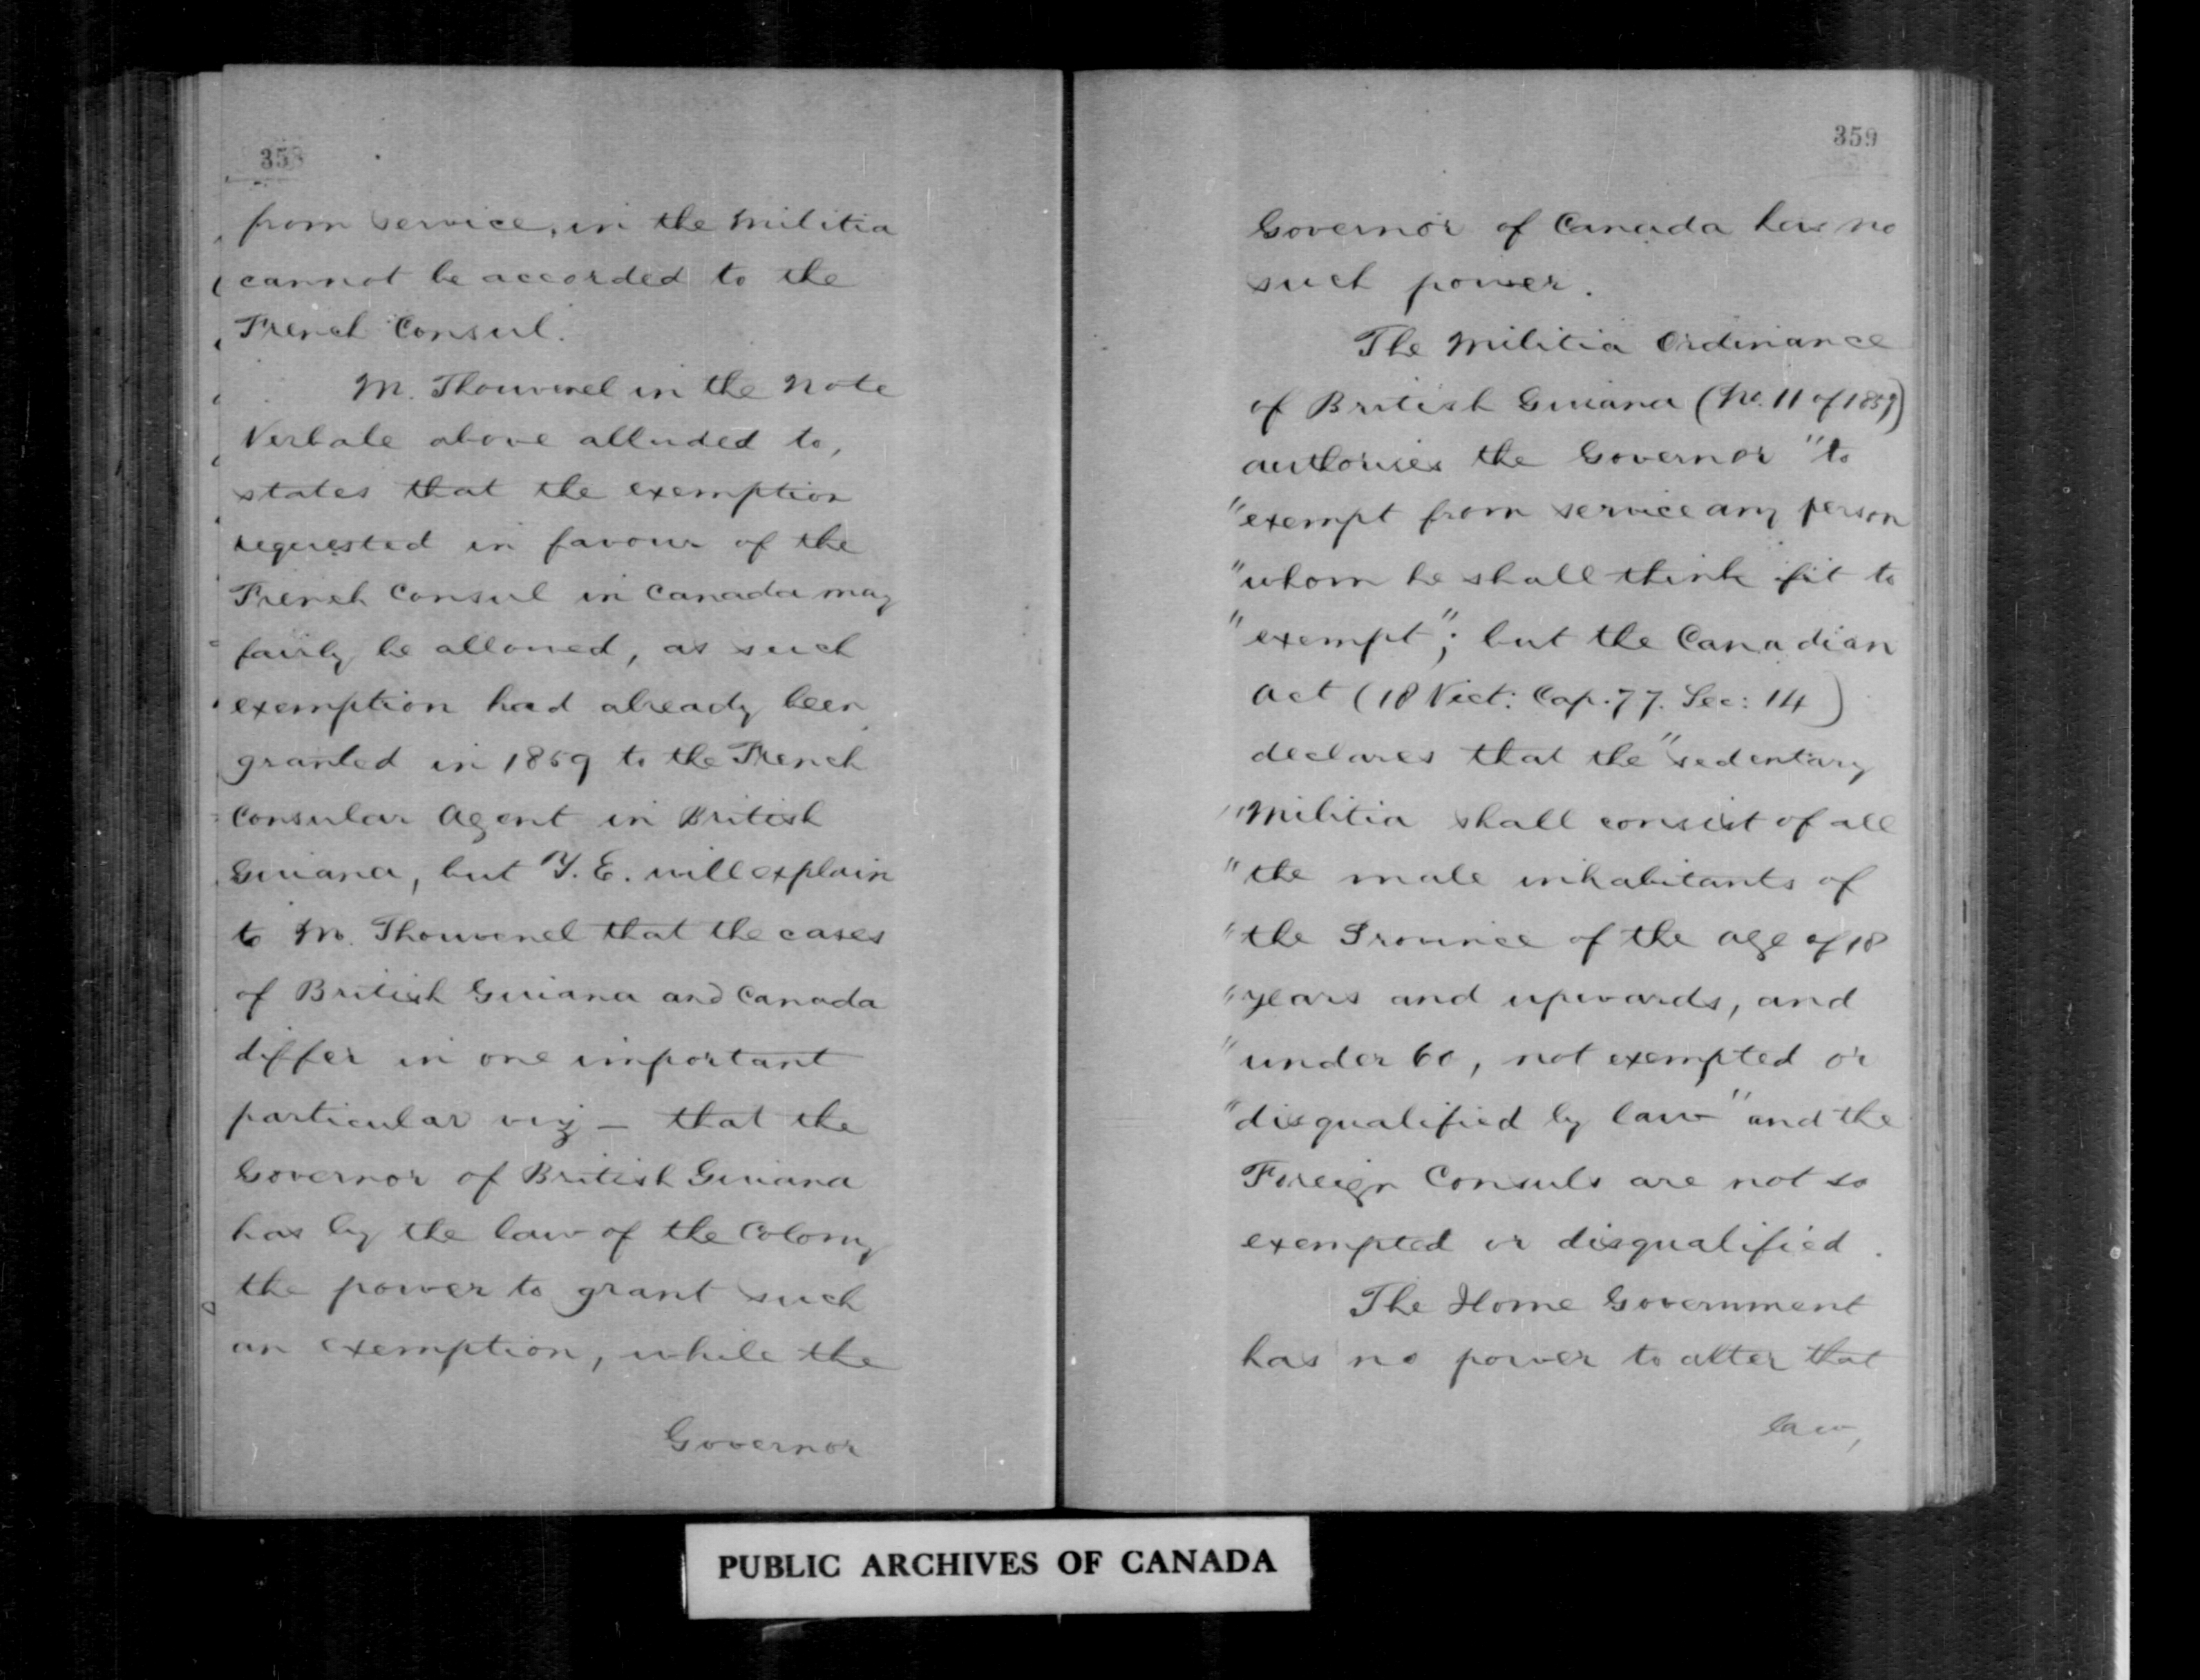 358
from service, in the Militia
cannot be accorded to the
French Consul.
M. Thouvenel in the Note
Verbale above alluded to,
states that the exemption
requested in favour of the
French Consul in Canada may
fairly be allowed, as such
exemption had already been
granted in 1859 to the French
Consular Agent in British
Guiana, but Y. E. will explain
to M. Thouvenel that the cases
of British Guiana and Canada
differ in one important
particular viz – that the
Governor of British Guiana
has by the law of the Colony
the power to grant such
an exemption, while the
Governor
359
Governor of Canada has no
such power.
The Militia Ordinance
of British Guiana (No. 11 of 1859)
authorises the Governor "to
"exempt from service any person
"whom he shall think fit to
"exempt"; but the Canadian
Act (18 Vict: Cap: 77. Sec: 14)
declares that the "sedentary
"Militia shall consist of all
"the male inhabitants of
"the Province of the age of 18
"years and upwards, and
"under 60, not exempted or
"disqualified by law" and the
Foreign Consuls are not so
exempted or disqualified.
The Home Government
has no power to alter that
law,
PUBLIC ARCHIVES OF CANADA